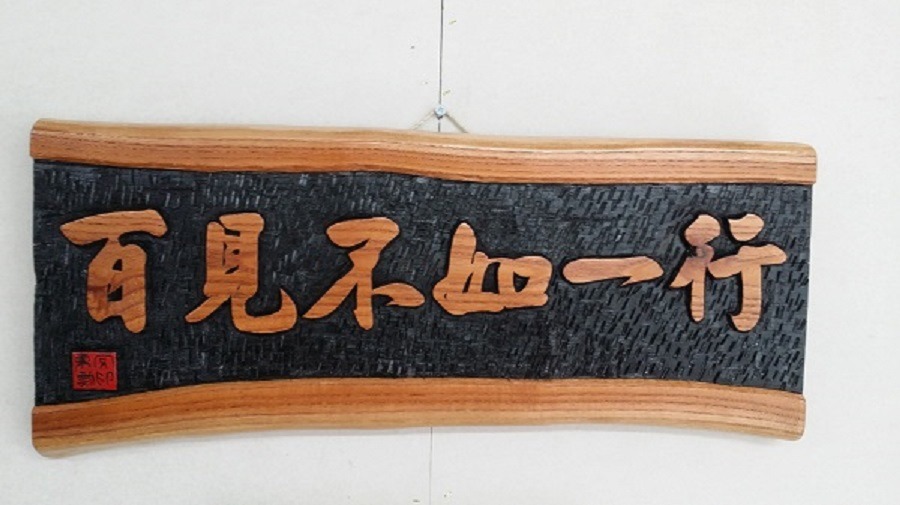 百見不如一行